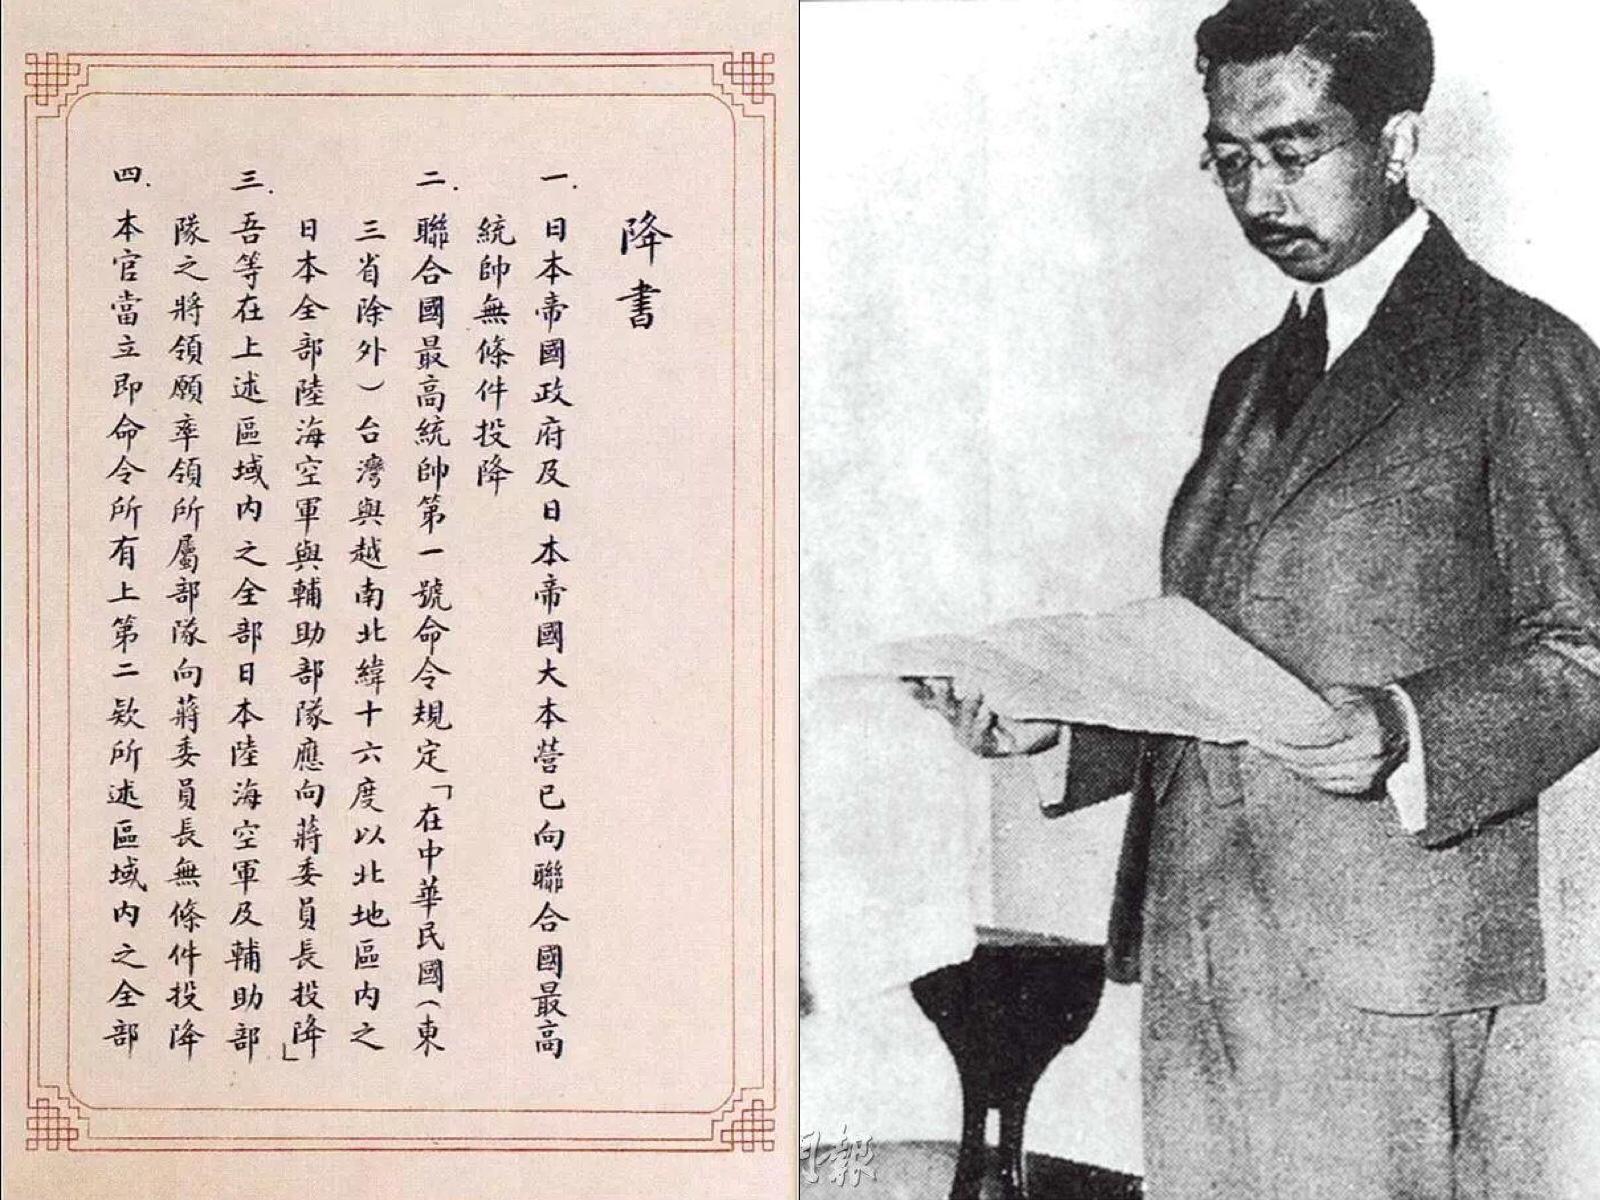 降書
一.日本帝國政府及日本帝國大本營已向聯合國最高
統帥無條件投降
二.聯合國最高統帥第一號命令規定「在中華民國(東
三省除外)台灣與越南北緯十六度以北地區內之
日本全部陸海空軍與輔助部隊應向蔣委員長投降」
三.吾等在上述區域內之全部日本陸海空軍及輔助部
隊之將領願率領所屬部隊向蔣委員長無條件投降
四.本官當立即命令所有上第二欵所述區域內之全部
報